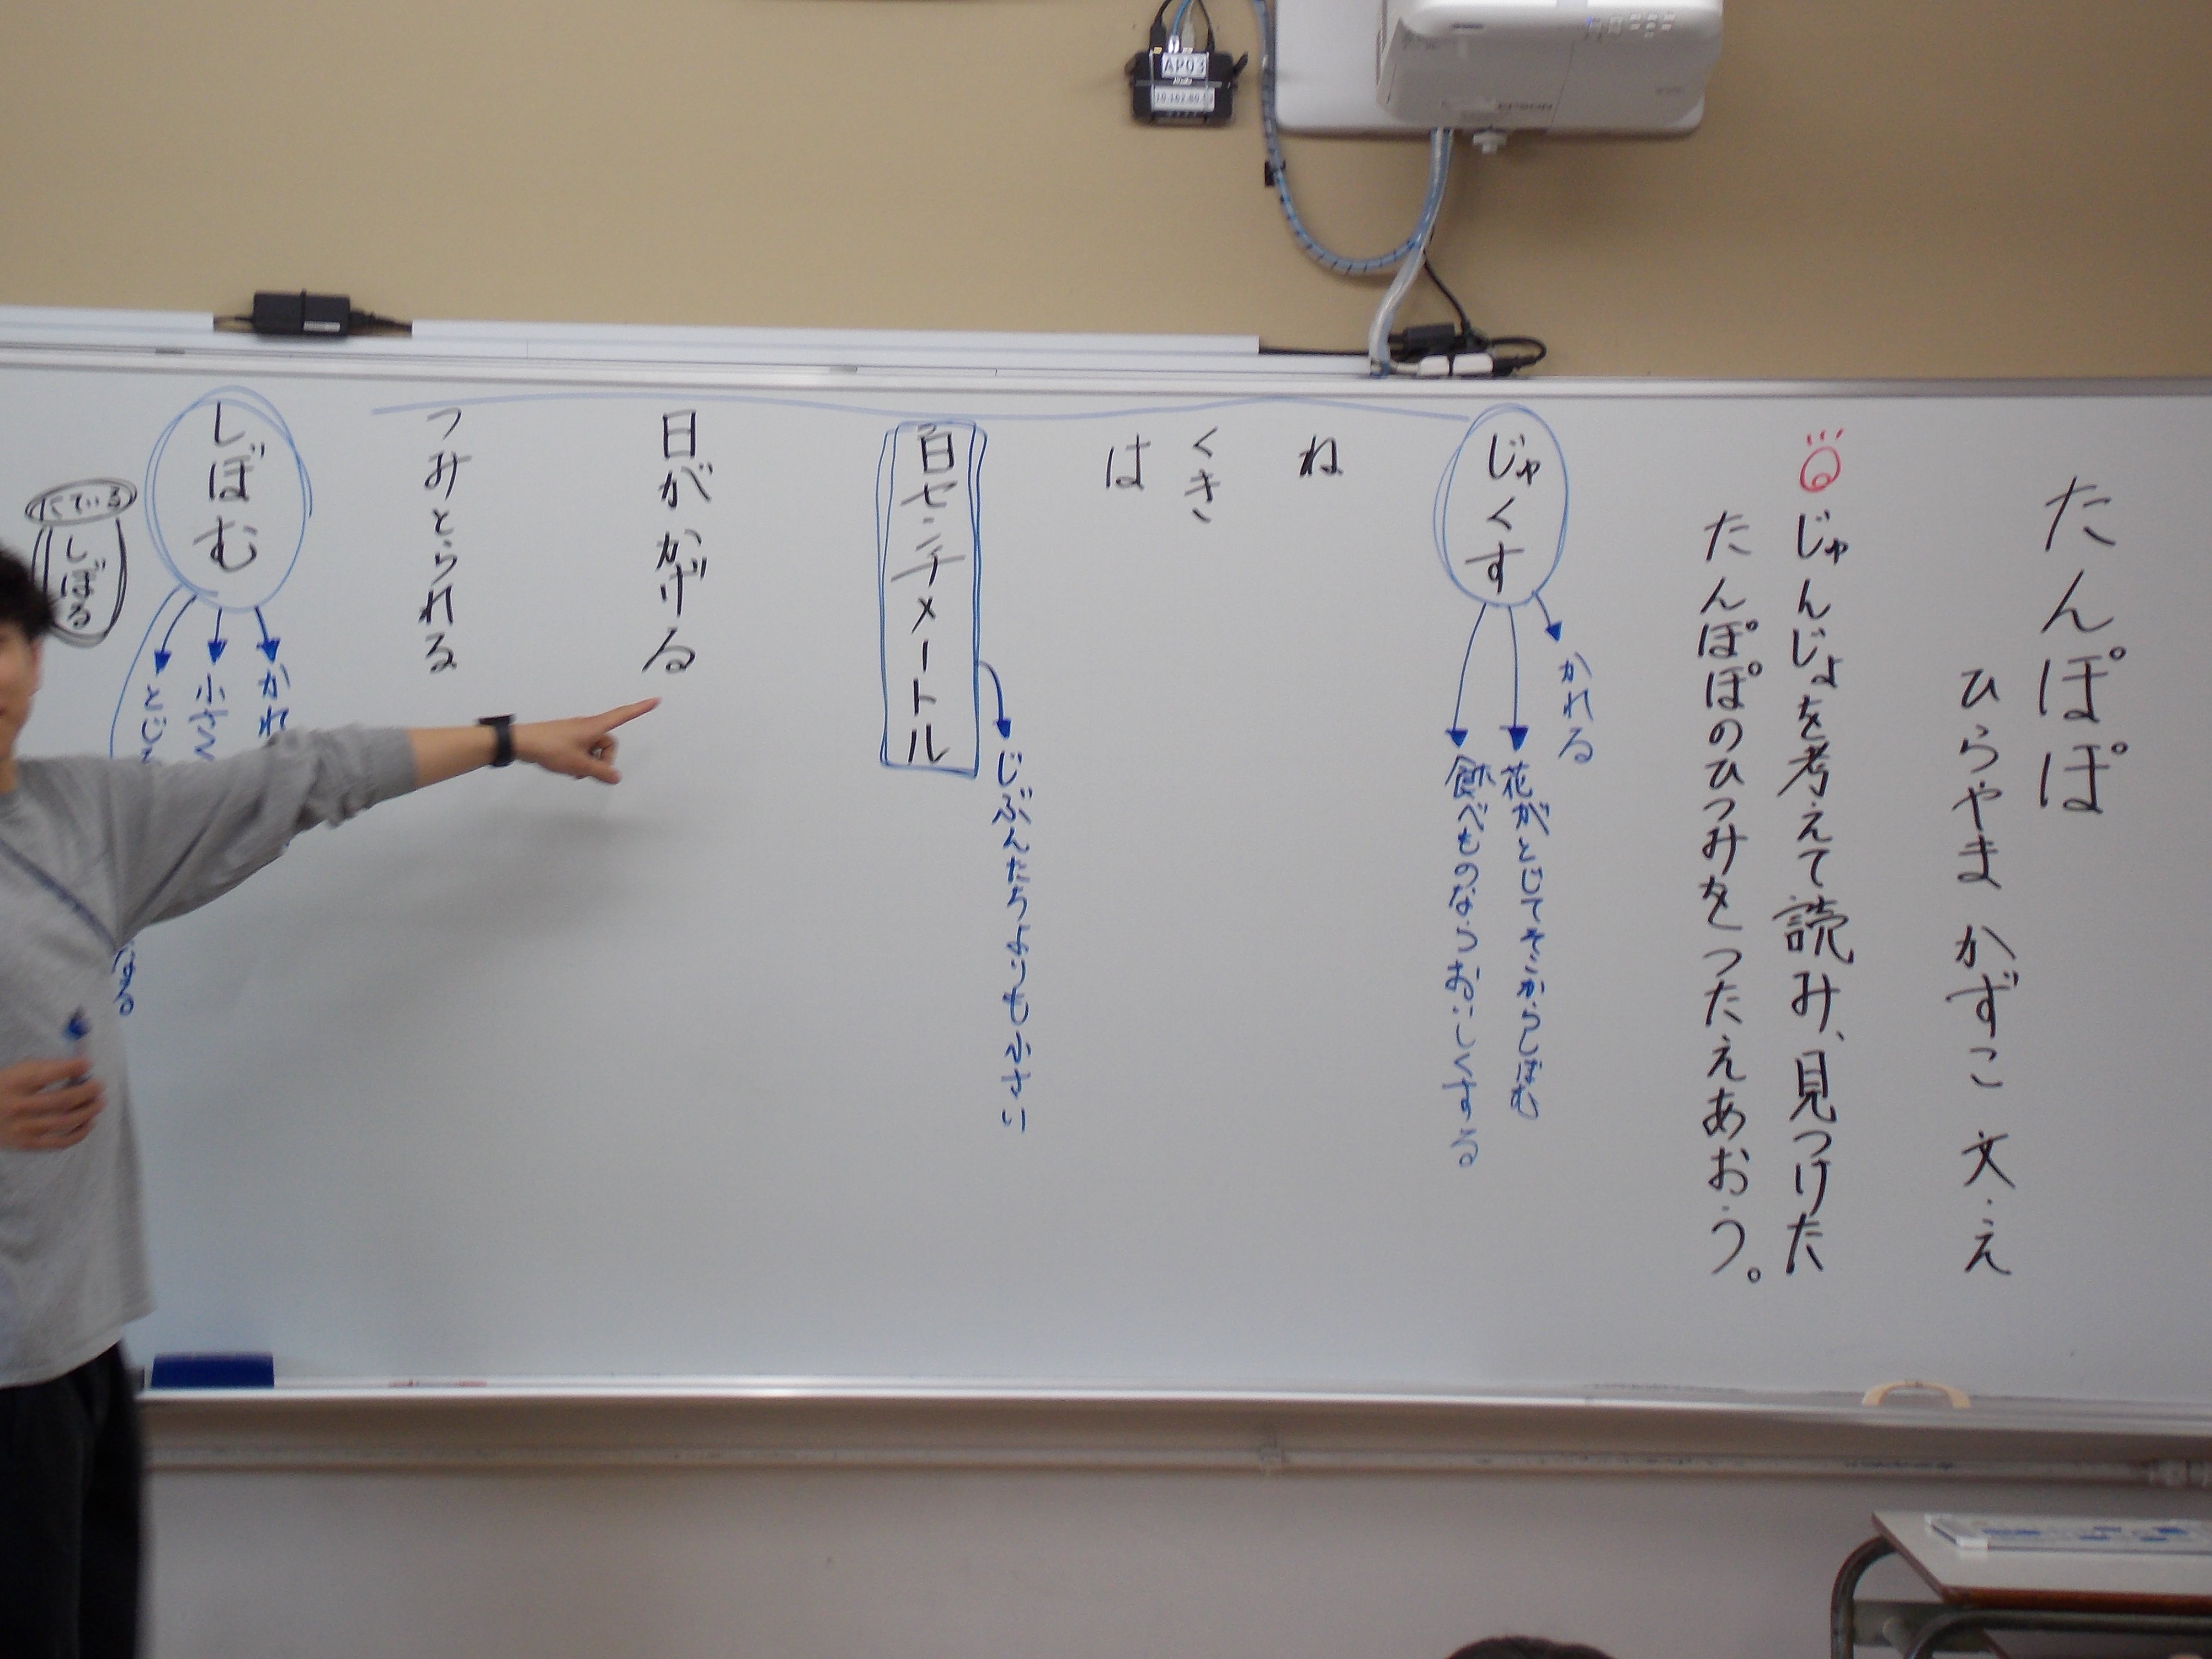 たんぽぽ
ひらやま かずこ 文・え
じゅんじょを考えて読み、見つけた
たんぽぽのひつみをつたえあおう。
じゅくす
かれる
花がとじてそこからしぼむ
食べものならおいしくなる
ね
くき
は
百センチメートル
じぶんたちよりも小さい
日がかげる
つみとられる
しぼむ
かれ
小さく
とじ
にている
しぼる
EPSON
AP03